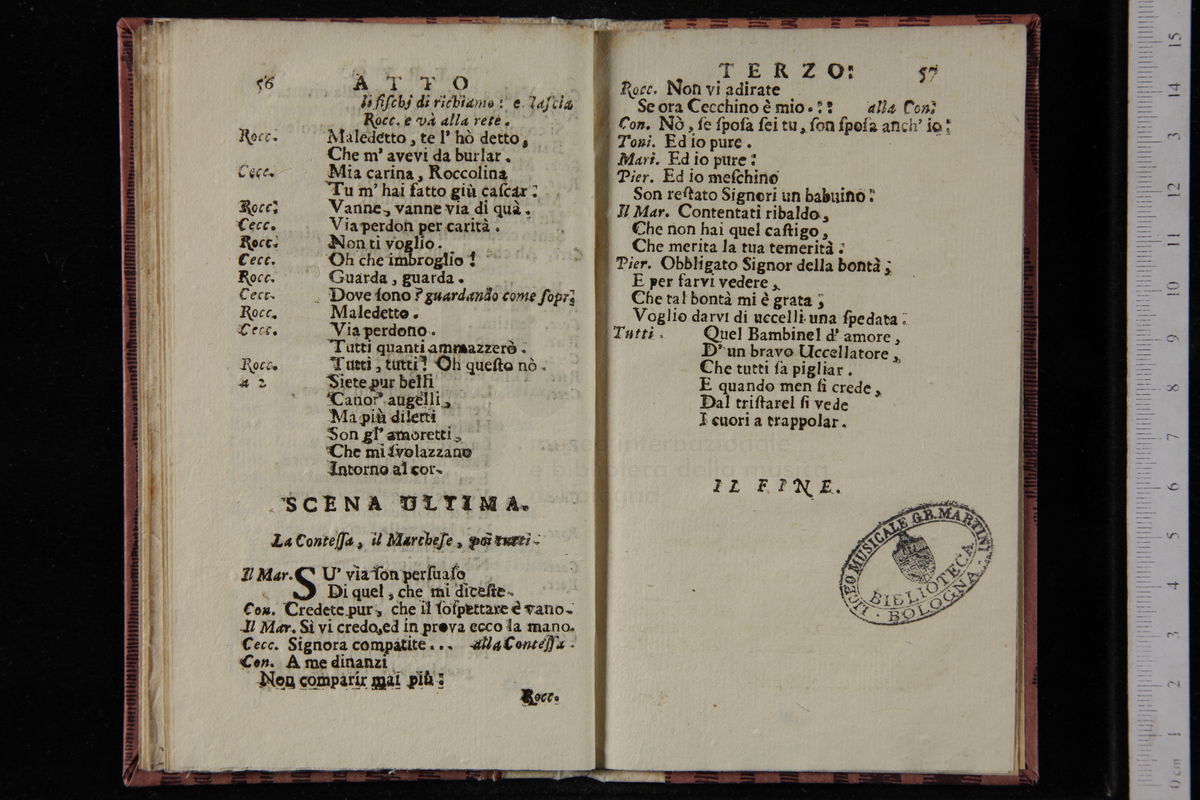 56 ATTO
li fiſchj di richiamo: e laſcia
Rocc. e và alla rete.
Rocc. Maledetto, te l' hò detto,
Che m' avevi da burlar.
Cecc. Mia carina, Roccolina
Tu m' hai fatto giù caſcar:
Rocc: Vanne, vanne via di quà.
Cecc. Via perdon per carità.
Rocc. Non ti voglio.
Cecc. Oh che imbroglio!
Rocc. Guarda, guarda.
Cecc. Dove ſono? guardando come ſopr;
Rocc. Maledetto.
Cecc. Via perdono.
Tutti quanti ammazzerò.
Rocc. Tutti, tutti! Oh queſto nò.
a 2 Siete pur belli
Canor' augelli,
Ma più diletti
Son gl' amoretti,
Che mi ſvolazzano
Intorno al cor.
SCENA ULTIMA.
La Conteſſa, il Marcheſe, poi tutti.
Il Mar. SU' via ſon perſuaſo
Di quel, che mi diceſte.
Con. Credete pur, che il ſoſpettare è vano.
Il Mar. Sì vi credo, ed in prova ecco la mano.
Cecc. Signora compatite... alla Conteſſa.
Con. A me dinanzi
Non comparir mai più:
Rocc.
TERZO: 57
Rocc. Non vi adirate
Se ora Cecchino è mio.:: alla Con:
Con. Nò, ſe ſpoſa ſei tu, ſon ſpoſa anch' io:
Toni. Ed io pure.
Mari. Ed io pure:
Pier. Ed io meſchino
Son reſtato Signori un babuino:
Il Mar. Contentati ribaldo,
Che non hai quel caſtigo,
Che merita la tua temerità.
Pier. Obbligato Signor della bontà;
E per farvi vedere,
Che tal bontà mi è grata;
Voglio darvi di uccelli una ſpedata.
Tutti. Quel Bambinel d' amore,
D' un bravo Uccellatore,
Che tutti ſa pigliar.
E quando men ſi crede,
Dal triſtarel ſi vede
I cuori a trappolar.
IL FINE.
LICEO MUSICALE G.B. MARTINI
BIBLIOTECA
· BOLOGNA ·
museo internazionale
e biblioteca della musica
di bologna
0 cm 1 2 3 4 5 6 7 8 9 10 11 12 13 14 15